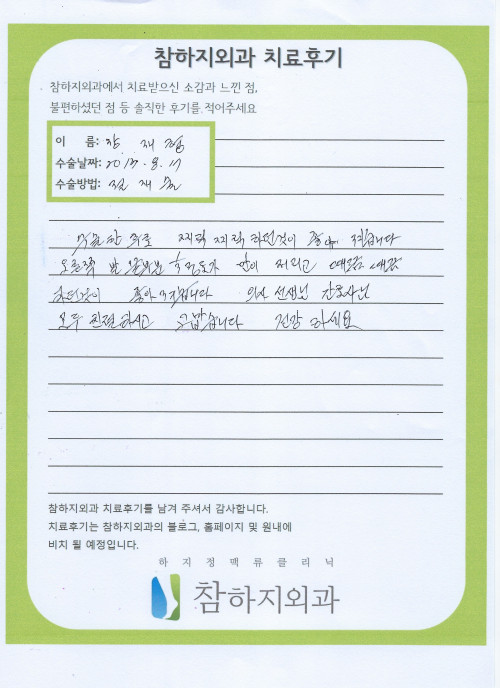 참하지외과 치료후기
참하지외과에서 치료받으신 소감과 느낀 점,
불편하셨던 점 등 솔직한 후기를 적어주세요
이 름: 장 재
수술날짜: 2017. 8. 17
수술방법:
수술한 후로 찌릿 찌릿 하던것이 좋아 졌습니다
오른쪽 발 많이 저리고 때끔 때끔
하던것이 좋아 졌습니다 의사 선생님 간호사님
모두 친절하시고 고맙습니다 건강 하세요
참하지외과 치료후기를 남겨 주셔서 감사합니다.
치료후기는 참하지외과의 블로그, 홈페이지 및 원내에
비치 될 예정입니다.
하 지 정 맥 류 클 리 닉
참하지외과